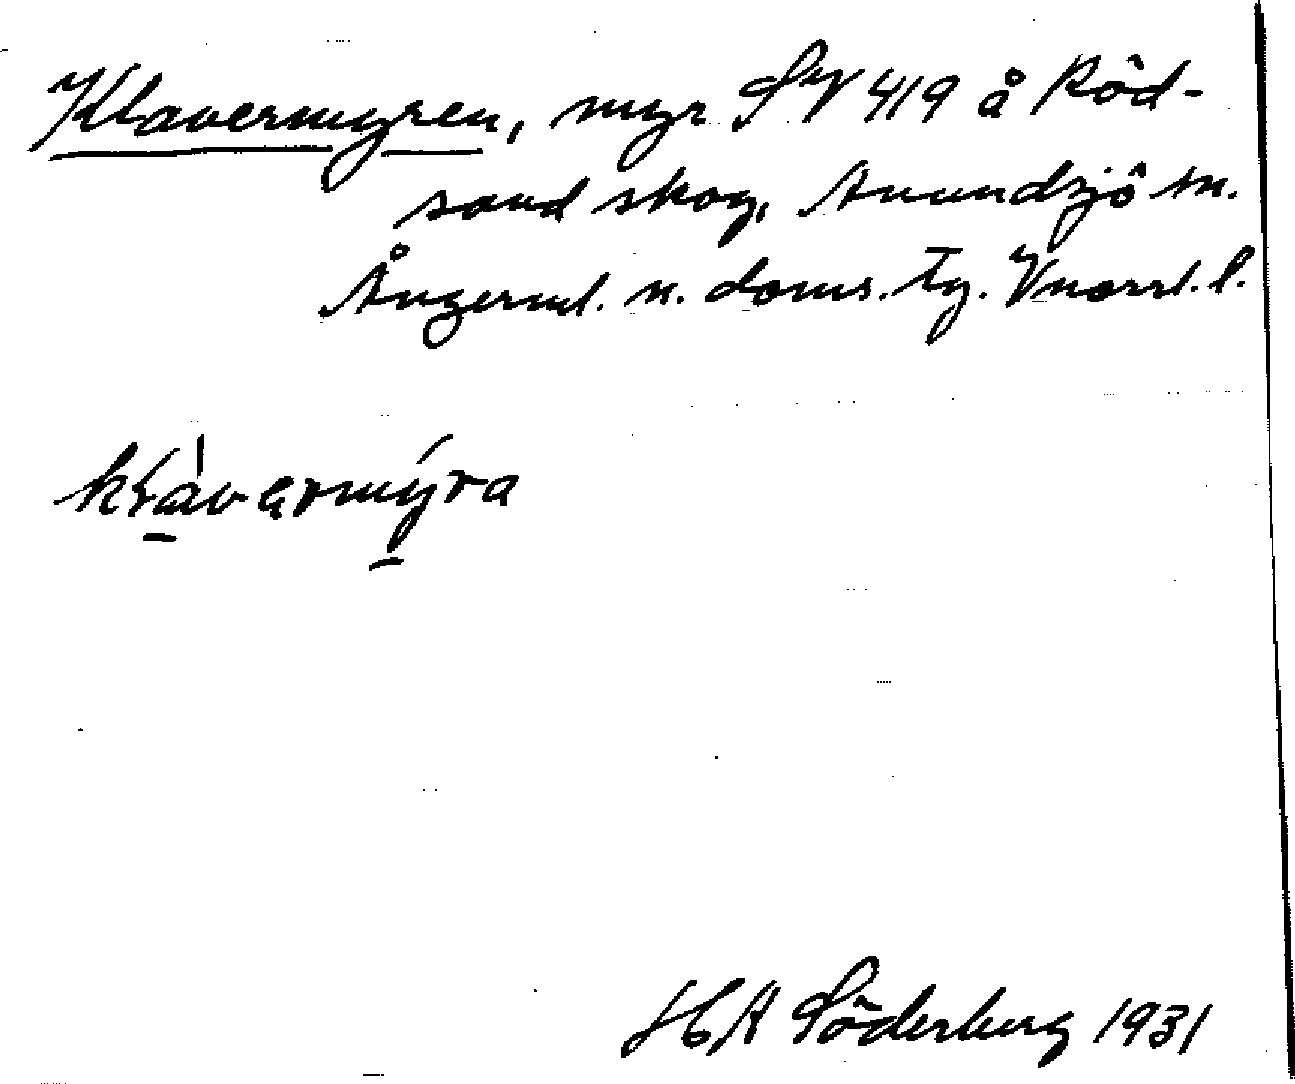 Klavermyren, myr SV 419 å Röd-
sand skog, Anundsjö sn.
Ångerml. n. doms. tg. Vnorrl. l.
klàvermýra
H A Söderberg 1931